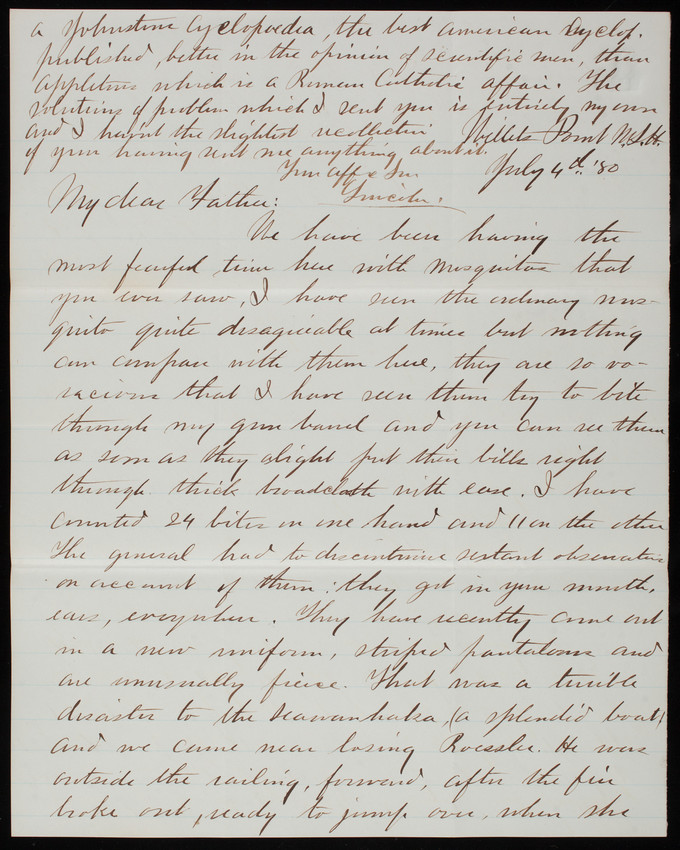 a Johnstons Cyclopaedia, the best American Cyclop.
published, better in the opinion of scientific men, than
Appletons which is a Roman Catholic affair. The
solutions of problem which I sent you is entirely my own
and I havnt the slightest recollection
of your having sent me anything about it.
Your aff. Son
Lincoln.
Willets Point N.Y.H.
July 4th '80
My dear Father:
We have been having the
most fearful time here with mosquitos that
you ever saw, I have seen the ordinary mos-
quito quite disagreeable at times but nothing
can compare with them here, they are so vo-
racious that I have seen them try to bite
through my gun barrel and you can see them
as soon as they alight put their bills right
through thick broadcloth with ease. I have
counted 24 bites on one hand and 11 on the other
The general had to discontinue sextant observations
on account of them: they get in your mouth,
ears, everywhere. They have recently come out
in a new uniform, striped pantaloons and
are unusually fierce. That was a terrible
disaster to the Seawanhaka, (a splendid boat)
and we came near losing Roessler. He was
outside the railing, forward, after the fire
broke out, ready to jump over, when she